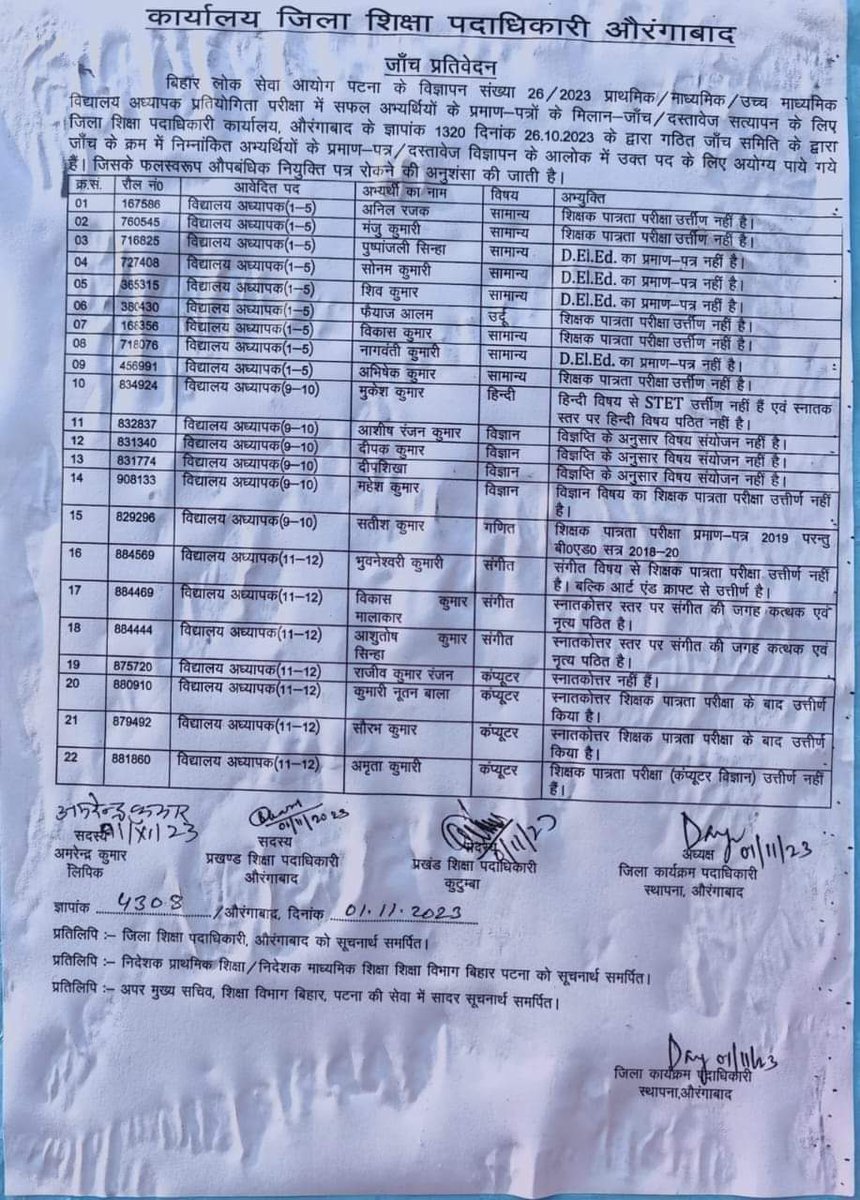 कार्यालय जिला शिक्षा पदाधिकारी औरंगाबाद
जाँच प्रतिवेदन
बिहार लोक सेवा आयोग पटना के विज्ञापन संख्या 26/2023 प्राथमिक/माध्यमिक/उच्च माध्यमिक
विद्यालय अध्यापक प्रतियोगिता परीक्षा में सफल अभ्यर्थियों के प्रमाण–पत्रों के मिलान–जाँच/दस्तावेज सत्यापन के लिए
जिला शिक्षा पदाधिकारी कार्यालय, औरंगाबाद के ज्ञापांक 1320 दिनांक 26.10.2023 के द्वारा गठित जाँच समिति के द्वारा
जाँच के क्रम में निम्नांकित अभ्यर्थियों के प्रमाण–पत्र/दस्तावेज विज्ञापन के आलोक में उक्त पद के लिए अयोग्य पाये गये
हैं। जिसके फलस्वरूप औपबंधिक नियुक्ति पत्र रोकने की अनुशंसा की जाती है।
क्र.सं. रौल नं0 आवेदित पद अभ्यर्थी का नाम विषय अभ्युक्ति
01 167586 विद्यालय अध्यापक(1–5) अनिल रजक सामान्य शिक्षक पात्रता परीक्षा उर्त्तीण नहीं है।
02 760545 विद्यालय अध्यापक(1–5) मंजु कुमारी सामान्य शिक्षक पात्रता परीक्षा उर्त्तीण नहीं है।
03 716825 विद्यालय अध्यापक(1–5) पुष्पांजली सिन्हा सामान्य D.El.Ed. का प्रमाण–पत्र नहीं है।
04 727408 विद्यालय अध्यापक(1–5) सोनम कुमारी सामान्य D.El.Ed. का प्रमाण–पत्र नहीं है।
05 365315 विद्यालय अध्यापक(1–5) शिव कुमार सामान्य D.El.Ed. का प्रमाण–पत्र नहीं है।
06 380430 विद्यालय अध्यापक(1–5) फैयाज आलम उर्दू शिक्षक पात्रता परीक्षा उर्त्तीण नहीं है।
07 168356 विद्यालय अध्यापक(1–5) विकास कुमार सामान्य शिक्षक पात्रता परीक्षा उर्त्तीण नहीं है।
08 718076 विद्यालय अध्यापक(1–5) नागवंती कुमारी सामान्य D.El.Ed. का प्रमाण–पत्र नहीं है।
09 456991 विद्यालय अध्यापक(1–5) अभिषेक कुमार सामान्य शिक्षक पात्रता परीक्षा उर्त्तीण नहीं है।
10 834924 विद्यालय अध्यापक(9–10) मुकेश कुमार हिन्दी हिन्दी विषय से STET उर्त्तीण नहीं हैं एवं स्नातक
स्तर पर हिन्दी विषय पठित नहीं है।
11 832837 विद्यालय अध्यापक(9–10) आशीष रंजन कुमार विज्ञान विज्ञप्ति के अनुसार विषय संयोजन नहीं है।
12 831340 विद्यालय अध्यापक(9–10) दीपक कुमार विज्ञान विज्ञप्ति के अनुसार विषय संयोजन नहीं है।
13 831774 विद्यालय अध्यापक(9–10) दीपशिखा विज्ञान विज्ञप्ति के अनुसार विषय संयोजन नहीं है।
14 908133 विद्यालय अध्यापक(9–10) महेश कुमार विज्ञान विज्ञान विषय का शिक्षक पात्रता परीक्षा उत्तीर्ण नहीं
है।
15 829296 विद्यालय अध्यापक(9–10) सतीश कुमार गणित शिक्षक पात्रता परीक्षा प्रमाण–पत्र 2019 परन्तु
बी0एड0 सत्र 2018–20
16 884569 विद्यालय अध्यापक(11–12) भुवनेश्वरी कुमारी संगीत संगीत विषय से शिक्षक पात्रता परीक्षा उत्तीर्ण नहीं
है। बल्कि आर्ट एंड क्राफ्ट से उत्तीर्ण है।
17 884469 विद्यालय अध्यापक(11–12) विकास कुमार संगीत स्नातकोत्तर स्तर पर संगीत की जगह कत्थक एवं
मालाकार नृत्य पठित है।
18 884444 विद्यालय अध्यापक(11–12) आशुतोष कुमार संगीत स्नातकोत्तर स्तर पर संगीत की जगह कत्थक एवं
सिन्हा नृत्य पठित है।
19 875720 विद्यालय अध्यापक(11–12) राजीव कुमार रंजन कंप्यूटर स्नातकोत्तर नहीं हैं।
20 880910 विद्यालय अध्यापक(11–12) कुमारी नूतन बाला कंप्यूटर स्नातकोत्तर शिक्षक पात्रता परीक्षा के बाद उत्तीर्ण
किया है।
21 879492 विद्यालय अध्यापक(11–12) सौरभ कुमार कंप्यूटर स्नातकोत्तर शिक्षक पात्रता परीक्षा के बाद उत्तीर्ण
किया है।
22 881860 विद्यालय अध्यापक(11–12) अमृता कुमारी कंप्यूटर शिक्षक पात्रता परीक्षा (कंप्यूटर विज्ञान) उत्तीर्ण नहीं
हैं।
अमरेन्द्र कुमार 01/11/2023 01/11/23
सदस्य सदस्य सदस्य अध्यक्ष
अमरेन्द्र कुमार प्रखण्ड शिक्षा पदाधिकारी प्रखंड शिक्षा पदाधिकारी जिला कार्यक्रम पदाधिकारी
लिपिक औरंगाबाद कुटुम्बा स्थापना, औरंगाबाद
ज्ञापांक 4308 /औरंगाबाद, दिनांक 01.11.2023
प्रतिलिपि :– जिला शिक्षा पदाधिकारी, औरंगाबाद को सूचनार्थ समर्पित।
प्रतिलिपि :– निदेशक प्राथमिक शिक्षा/निदेशक माध्यमिक शिक्षा शिक्षा विभाग बिहार पटना को सूचनार्थ समर्पित।
प्रतिलिपि :– अपर मुख्य सचिव, शिक्षा विभाग बिहार, पटना की सेवा में सादर सूचनार्थ समर्पित।
01/11/23
जिला कार्यक्रम पदाधिकारी
स्थापना,औरंगाबाद